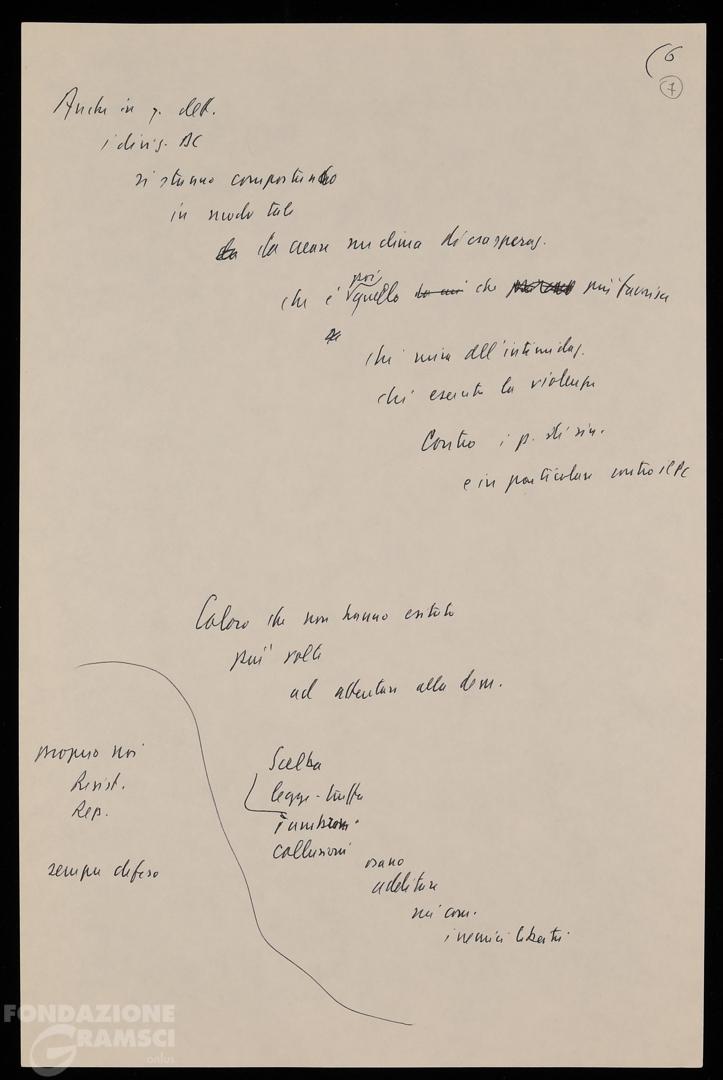 (6
7
Anche in q. dett.
i dirig. DC
si stanno comportando
in modo tale
da creare un clima di esasperaz.
che è poi quello che più favorisce
chi mira all'intimidaz.
chi esercita la violenza
Contro i p. di sin.
e in particolare contro il PC
Coloro che non hanno esitato
più volte
ad attentare alla dem.
proprio noi
Resist.
Rep.
sempre difeso
Scelba
legge-truffa
collusioni
osano
additare
nei com.
i nemici libertà
FONDAZIONE
GRAMSCI
onlus